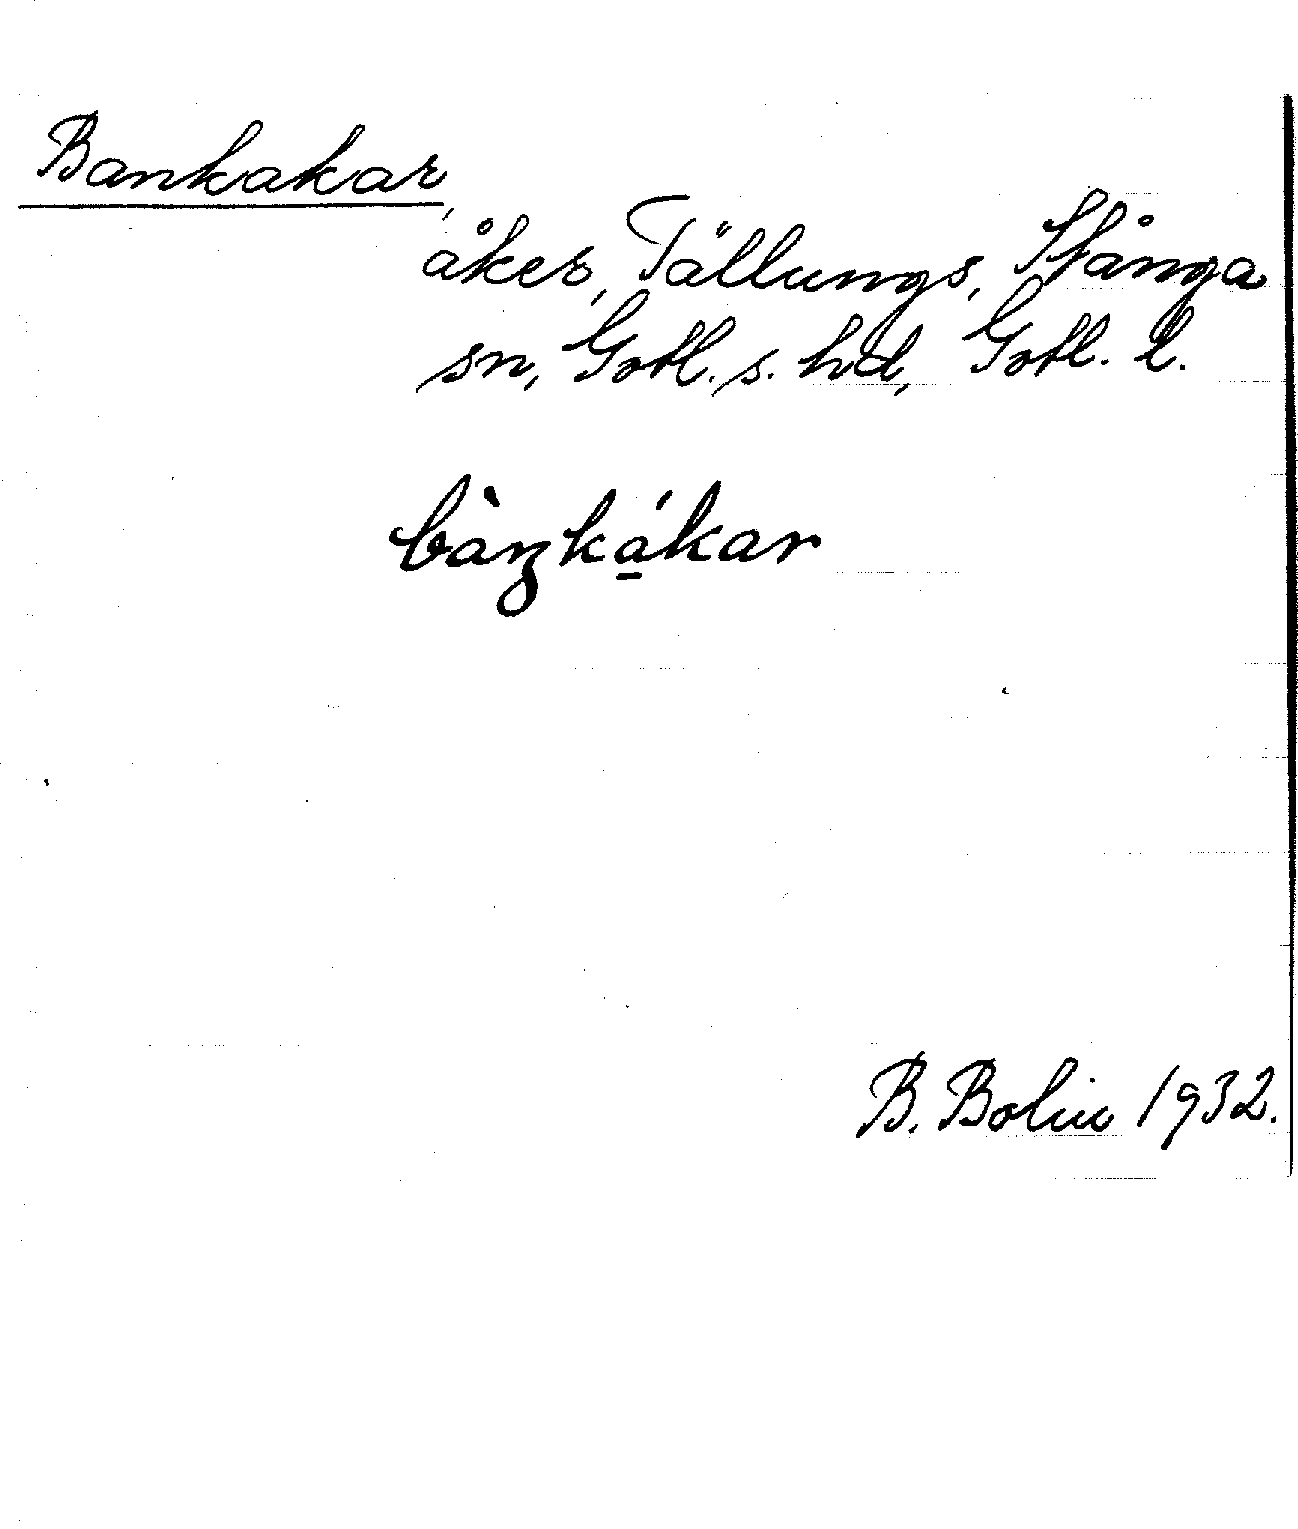 Bankakar,
åker, Tällungs, Stånga
sn, Gotl. s. hd, Gotl. l.
bàŋká̱kar
B. Bolin 1932.